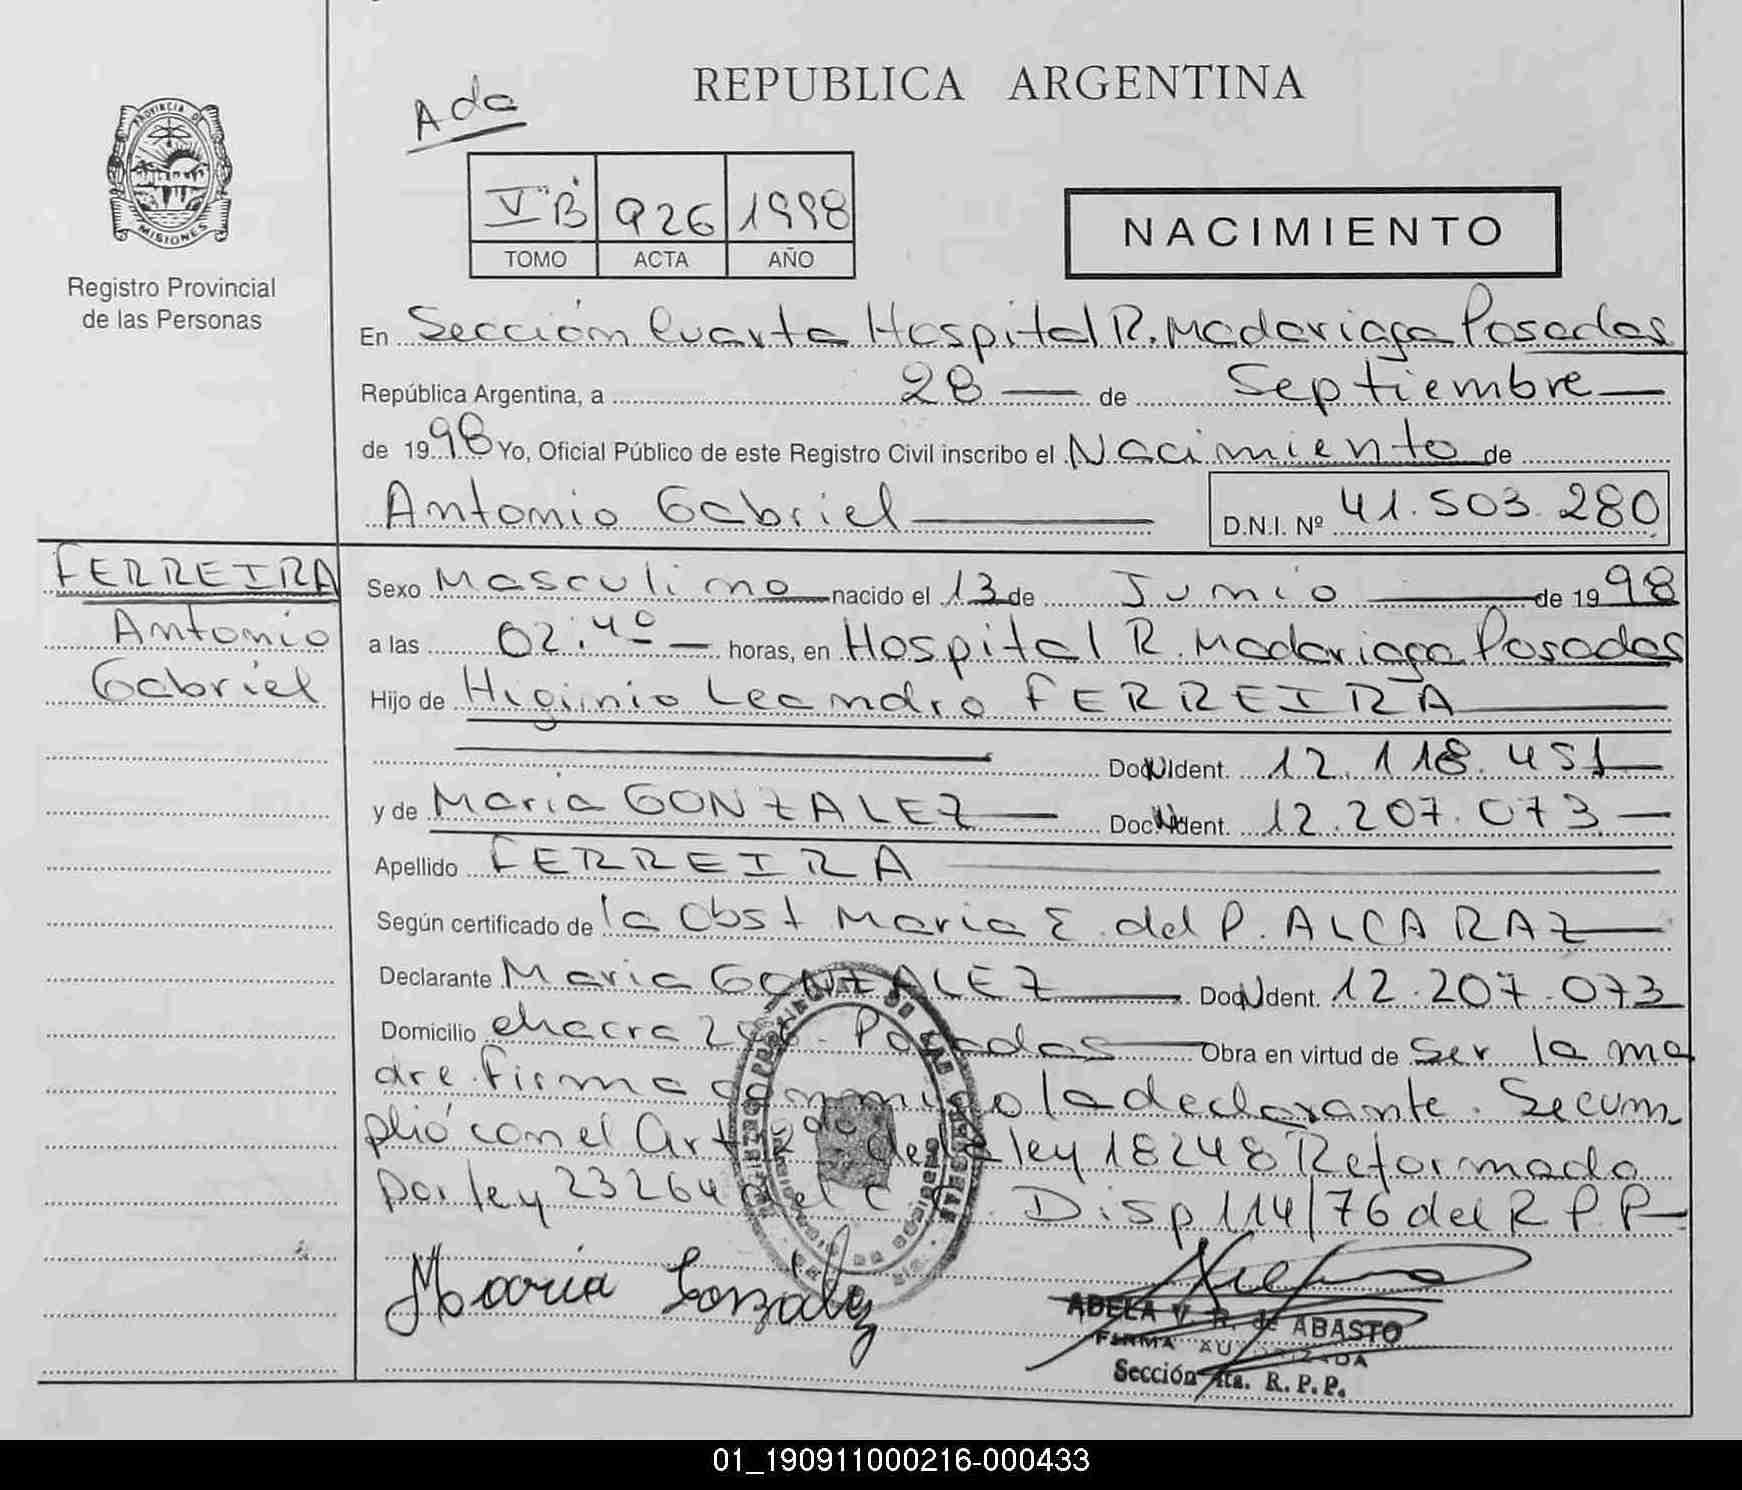 REPUBLICA ARGENTINA
Ada
PROVINCIA DE
MISIONES
Registro Provincial
de las Personas
V "B" 926 1998
TOMO ACTA AÑO
NACIMIENTO
En Sección Cuarta Hospital R. Madariaga Posadas
República Argentina, a 28 de Septiembre
de 1998 Yo, Oficial Público de este Registro Civil inscribo el Nacimiento de
Antonio Gabriel D.N.I. Nº 41.503.280
FERREIRA
Antonio
Gabriel
Sexo Masculino nacido el 13 de Junio de 1998
a las 02:40 horas, en Hospital R. Madariaga Posadas
Hijo de Higinio Leandro FERREIRA
Doc Ident. 12.118.451
y de Maria GONZALEZ Doc Ident. 12.207.073
Apellido FERREIRA
Según certificado de la Obst Maria E. del P. ALCARAZ
Declarante Maria GONZALEZ Doc Ident. 12.207.073
Domicilio chacra Posadas Obra en virtud de Ser la ma
dre. Firma conmigo la declarante. Se cum
plió con el Art 2do de la ley 18248 Reformado
por ley 23264 del C. C. Disp 114/76 del R.P.P
Maria Gonzalez
ADELA V. R. de ABASTO
FIRMA AUTORIZADA
Sección 4ta. R. P. P.
01_190911000216-000433